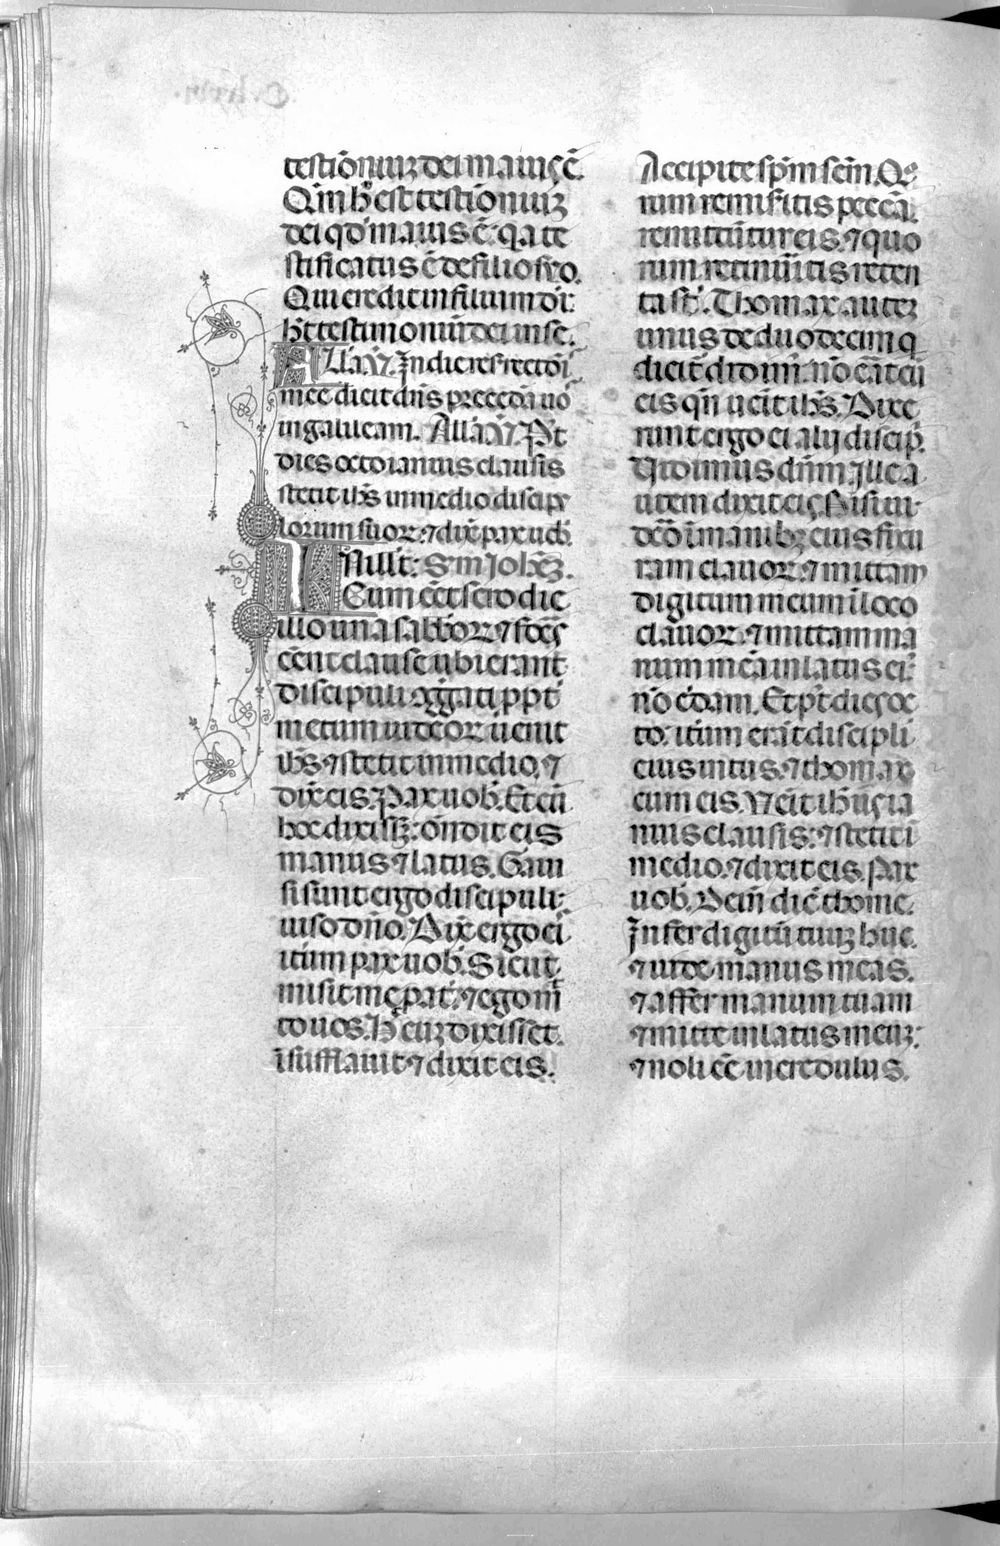 testiōniuꝫ dei maiꝰ ē.
Qm̄ h̊ est testiōniuꝫ
dei qđ maius ē: qa te
stificatus ē de filio suo.
Qui credit in filium di:
ht̄ testimoniū dei in se.
Alla. ꝟ. In die resrectōi
mee dicit dn̄s precedā uo
in galileam. Alla ꝟ Pt
dies octo ianuis clausis
stetit ihs̄ in medio discip
lorum suorꝫ ⁊ dix̄ pax uob̄.
In illt: Sm Johēꝫ.
Cum eēt sero die
illo una sabborꝫ ⁊ fōēs
eēnt clause ubi erant
discipuli ꝯggati ppt
metum iudeorꝫ uenit
ihs̄ ⁊ stetit in medio, ⁊
dix̄ eis. Pax uob̄. Et cū
hoc dixissꝫ: ōndit eis
manus ⁊ latus. Gaui
si sunt ergo discipuli:
uiso dn̄o. Dix̄ ergo ei
itūm pax uob̄. Sicut
misit me pat̄: ⁊ ego mi
to uos. H̄ cuꝫ dixisset.
īsufflauit ⁊ dixit eis.
Accipite sp̄m scm̄. Qo
rum remisitis peccā.
remittūtur eis. ⁊ quo
rum retinuitis reten
ta st̄. Thomax auteꝫ
unus de duodecim q
dicit̄ didimi: nō eāt cū
eis qn̄ ueīt ihs̄. Dixe
runt ergo ei alij discip̄.
Uidimus dn̄m. Ille a
utem dixit eis Nisi ui
deōo ī manibꝫ eius fixu
ram clauorꝫ. ⁊ mittam
digitum meum ī loco
clauorꝫ. ⁊ mittam ma
num meā in latus ei:
nō c̄dam. Et pt̄ dies oc
to. itūm erāt discipli
eius intus. ⁊ thomax
cum eis. Veīt ihūs ia
nuis clausis: ⁊ stetit ī
medio. ⁊ dixit eis. Pax
uob̄. Dein̄ dic̄ thome.
Infer digitū tuuꝫ huc.
⁊ uide manus meas.
⁊ affer manum tuam
⁊ mitte in latus meuꝫ:
⁊ noli eē incredulus.